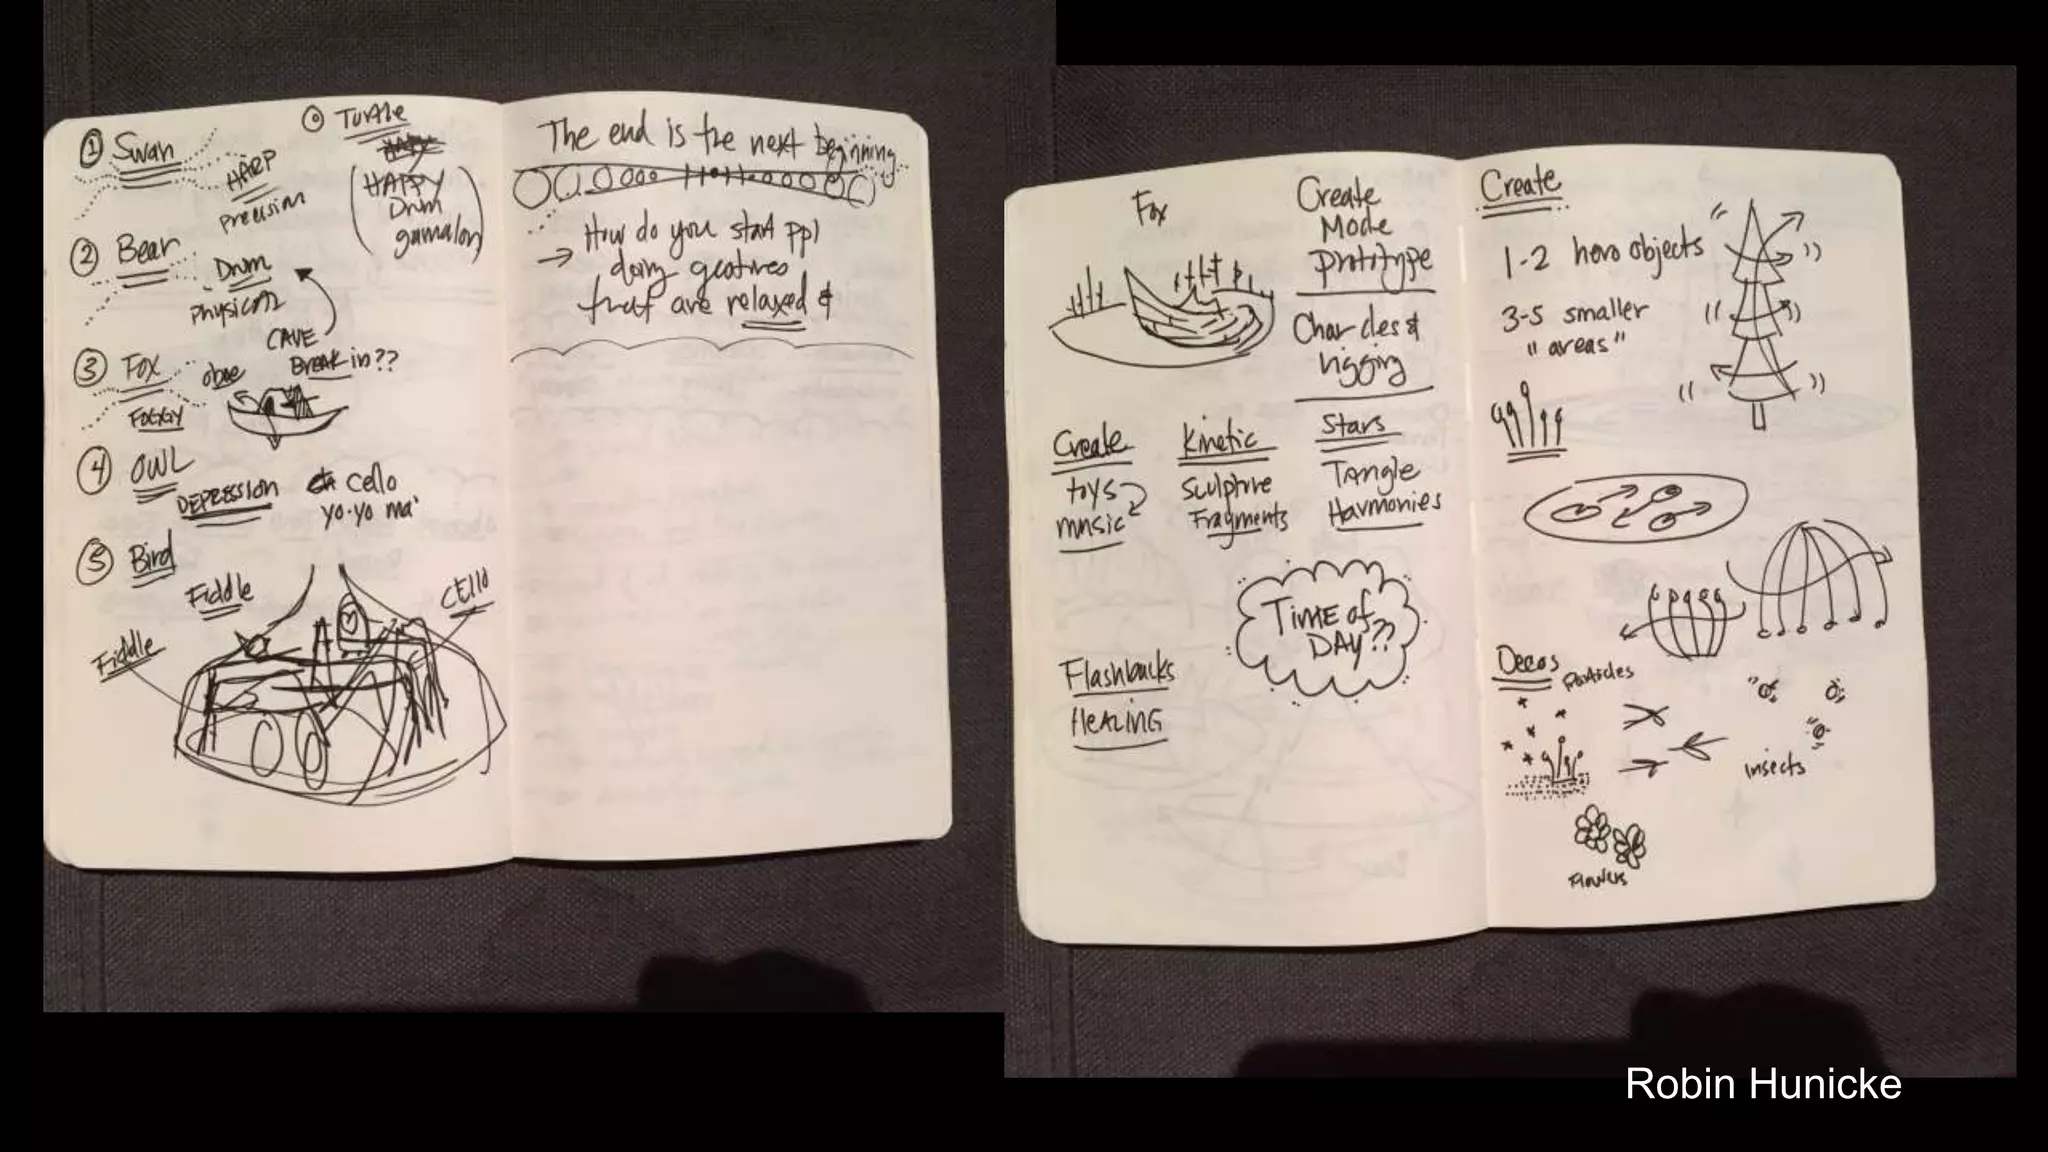 ① Swan
HARP
precision
⓪ Turtle
HAPPY
(HAPPY
Drum
gamalon)
② Bear
Drum
physical
CAVE
BREAK in??
③ Fox
oboe
FOGGY
④ OWL
DEPRESSION
cello
yo-yo ma'
⑤ Bird
Fiddle
Fiddle
CEllo
The end is the next beginning
→ How do you start ppl
doing gestures
that are relaxed &
Fox
Create
Mode
prototype
Char des &
rigging
Create
toys
music
Kinetic
Sculpture
Fragments
Stars
TAngle
Harmonies
TIME of
DAY??
Flashbacks
HEALING
Create
1-2 hero objects
3-5 smaller
"areas"
Decos
particles
insects
Flowers
Robin Hunicke